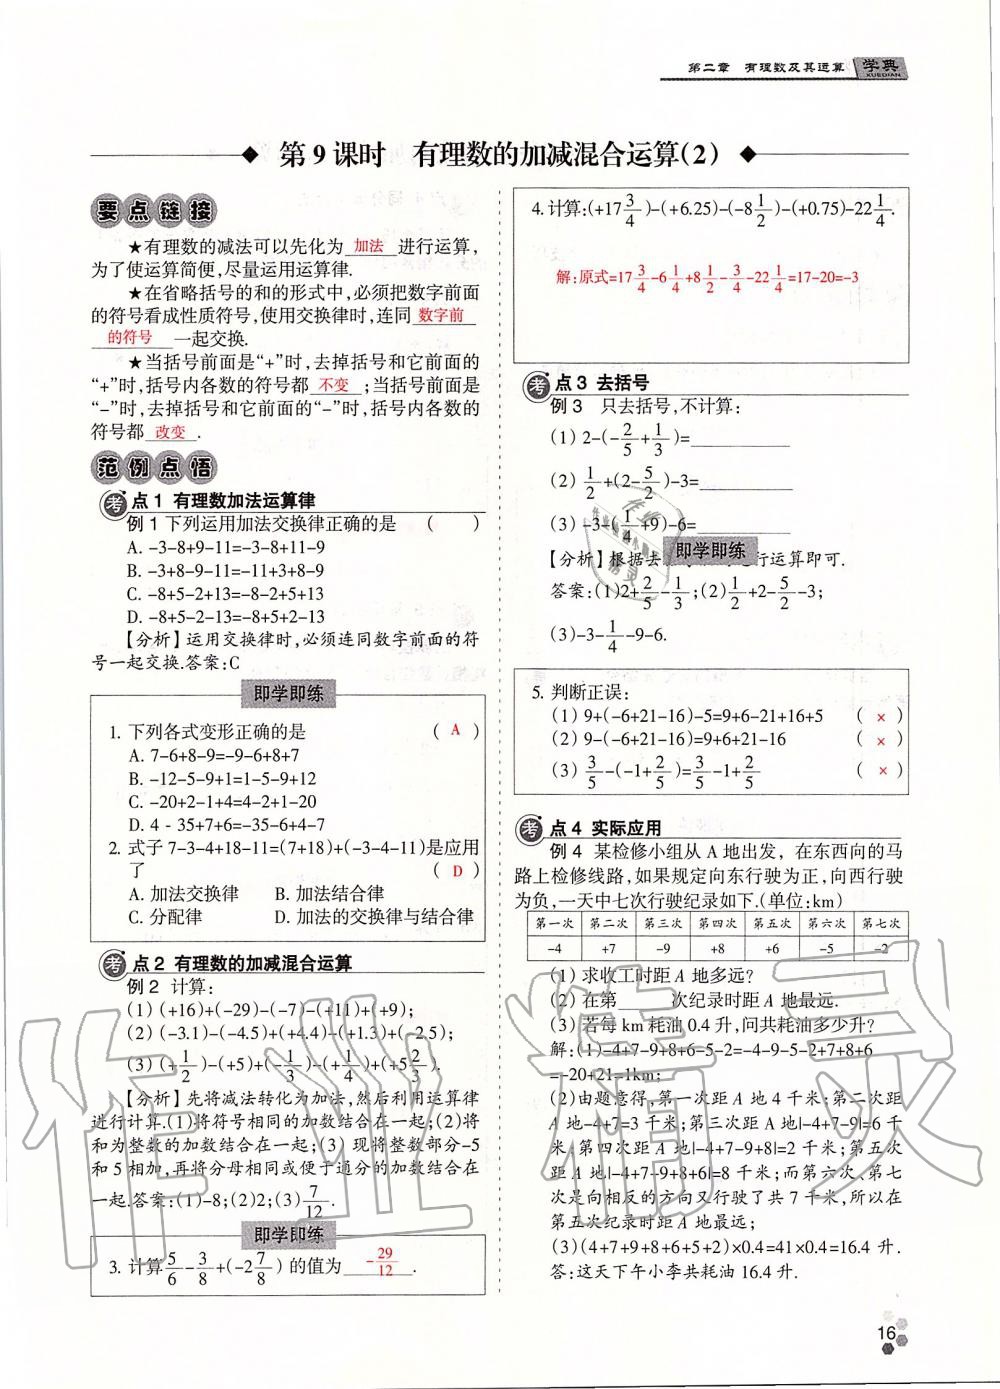 第二章 有理数及其运算 学典
XUEDIAN
第9课时 有理数的加减混合运算(2)
要点链接
★有理数的减法可以先化为 加法 进行运算,
为了使运算简便,尽量运用运算律.
★在省略括号的和的形式中,必须把数字前面
的符号看成性质符号,使用交换律时,连同 数字前
的符号 一起交换.
★当括号前面是“+”时,去掉括号和它前面的
“+”时,括号内各数的符号都 不变 ;当括号前面是
“-”时,去掉括号和它前面的“-”时,括号内各数的
符号都 改变 .
范例点悟
考点1 有理数加法运算律
例1 下列运用加法交换律正确的是 ( )
A. -3-8+9-11=-3-8+11-9
B. -3+8-9-11=-3+9-8-11
C. -8+5+2-13=-8-2+5+13
D. -8+5-2-13=-8+5+2-13
【分析】运用交换律时,必须连同数字前面的符
号一起交换.答案:C
即学即练
1. 下列各式变形正确的是 ( A )
A. 7-6+8-9=-9-6+8+7
B. -12-5-9+1=1-5-9+12
C. -20+2-1+4=4-2+1-20
D. 4-35+7+6=-35-6+4-7
2. 式子7-3-4+18-11=(7+18)+(-3-4-11)是应用
了 ( D )
A. 加法交换律 B. 加法结合律
C. 分配律 D. 加法的交换律与结合律
考点2 有理数的加减混合运算
例2 计算:
(1) (+16)+(-29)-(-7)-(+11)+(+9);
(2) (-3.1)-(-4.5)+(+4.4)-(+1.3)+(-2.5);
(3) (+1/2)-(+5)+(-1/3)-(+1/4)+(+5 2/3).
【分析】先将减法转化为加法,然后利用运算律
进行计算.(1)将符号相同的加数结合在一起;(2)将
和为整数的加数结合在一起;(3) 现将整数部分-5
和5相加,再将分母相同或便于通分的加数结合在
一起.答案:(1)-8;(2)2;(3)7/12.
即学即练
3. 计算5/6-3/8+(-2 7/8) 的值为 -29/12 .
4. 计算:(+17 3/4)-(+6.25)-(-8 1/2)-(+0.75)-22 1/4.
解:原式=17 3/4-6 1/4+8 1/2-3/4-22 1/4=17-20=-3
考点3 去括号
例3 只去括号,不计算:
(1) 2-(-2/5+1/3)=
(2) 1/2+(2-5/2)-3=
(3) -3-(1/4+9)-6=
【分析】根据去 行运算即可.
即学即练
答案:(1)2+2/5-1/3;(2)1/2+2-5/2-3;
(3)-3-1/4-9-6.
5. 判断正误:
(1) 9+(-6+21-16)-5=9+6-21+16+5 ( × )
(2) 9-(-6+21-16)=9+6+21-16 ( × )
(3) 3/5-(-1+2/5)=3/5-1+2/5 ( × )
考点4 实际应用
例4 某检修小组从A地出发, 在东西向的马
路上检修线路,如果规定向东行驶为正,向西行驶
为负,一天中七次行驶纪录如下.(单位:km)
第一次 第二次 第三次 第四次 第五次 第六次 第七次
-4 +7 -9 +8 +6 -5 -2
(1) 求收工时距A地多远?
(2) 在第 次纪录时距A地最远.
(3) 若每km耗油0.4升,问共耗油多少升?
解:(1)-4+7-9+8+6-5-2=-4-9-5-2+7+8+6
=-20+21=1km;
(2)由题意得,第一次距A地4千米;第二次距
A地-4+7=3千米;第三次距A地|-4+7-9|=6千
米;第四次距A地|-4+7-9+8|=2千米;第五次
距A地|-4+7-9+8+6|=8千米;而第六次、第七
次是向相反的方向又行驶了共7千米,所以在
第五次纪录时距A地最远;
(3)(4+7+9+8+6+5+2)×0.4=41×0.4=16.4升.
答:这天下午小李共耗油16.4升.
作业精灵
16